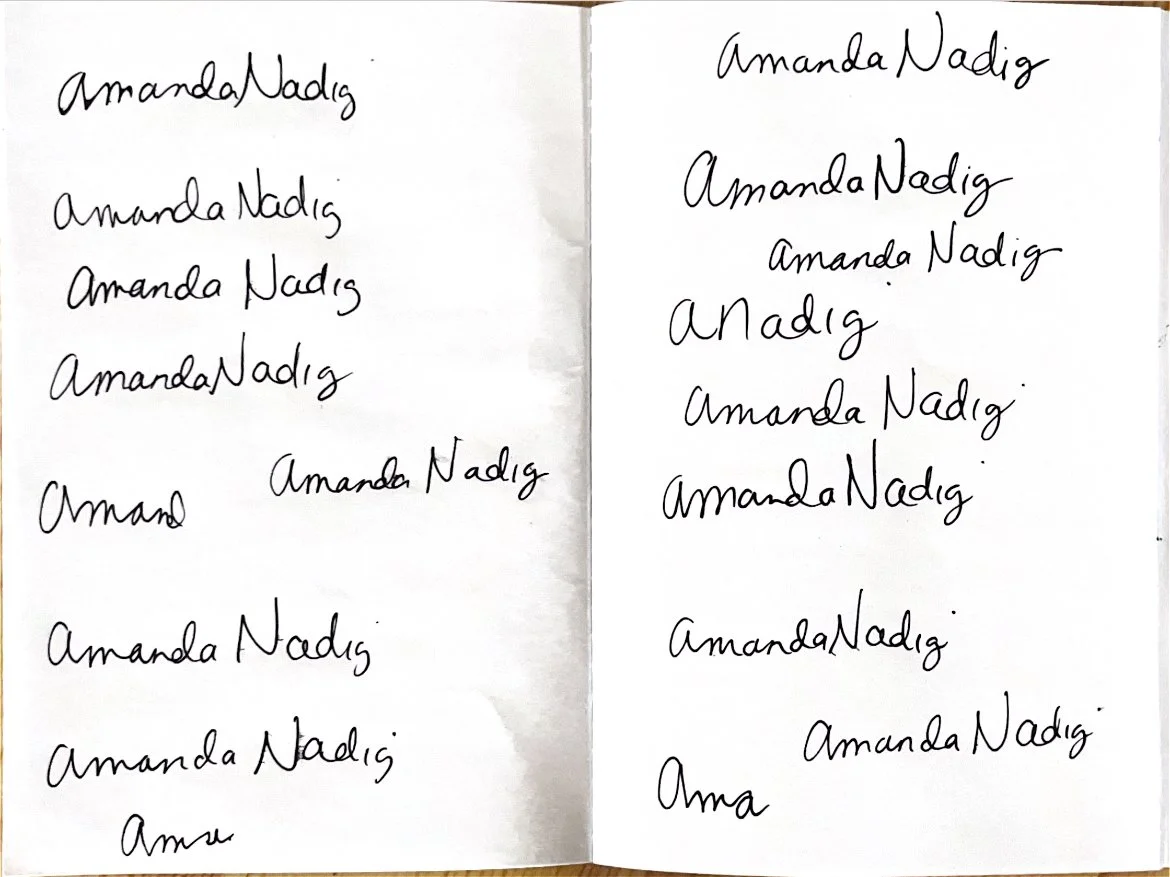 Amanda Nadig
Amanda Nadig
Amanda Nadig
Amanda Nadig
Amanda Nadig
Amand
Amanda Nadig
Amanda Nadig
Ama
Amanda Nadig
Amanda Nadig
Amanda Nadig
A Nadig
Amanda Nadig
Amanda Nadig
Amanda Nadig
Amanda Nadig
Ama